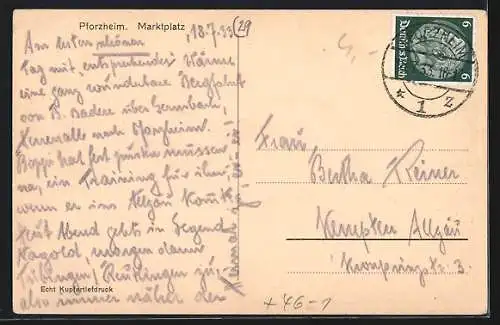 Pforzheim. Marktplatz
18.7.33
29
Am ersten schönen
Tag mit entsprechender Wärme
eine ganz wunderbare Bergfahrt
von B. Baden über Gernsbach,
Herrenalb nach Pforzheim.
hat fest müssen
na, ein Training für ihn,
wenn er ins Allgäu kommt.
Heut Abend gehts in Gegend
Nagold, morgen dann
Tübingen/Reutlingen zu,
also immer näher der
Heimat
Echt Kupfertiefdruck
Frau
Bertha Reiner
Kempten Allgäu
Kronprinzstr. 3.
Deutsches Reich
6
6
* 1 z
+46-1